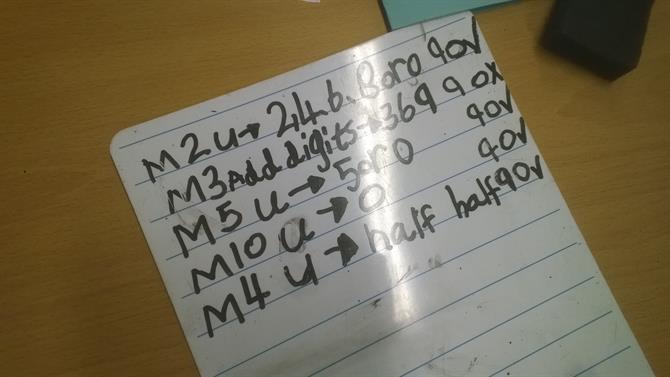 M2 U → 2,4.6.8 or 0 90√
M3 Add digits → 369 90X
M5 U → 5 or 0 90√
M10 U → 0 90√
M4 U → half half 90√